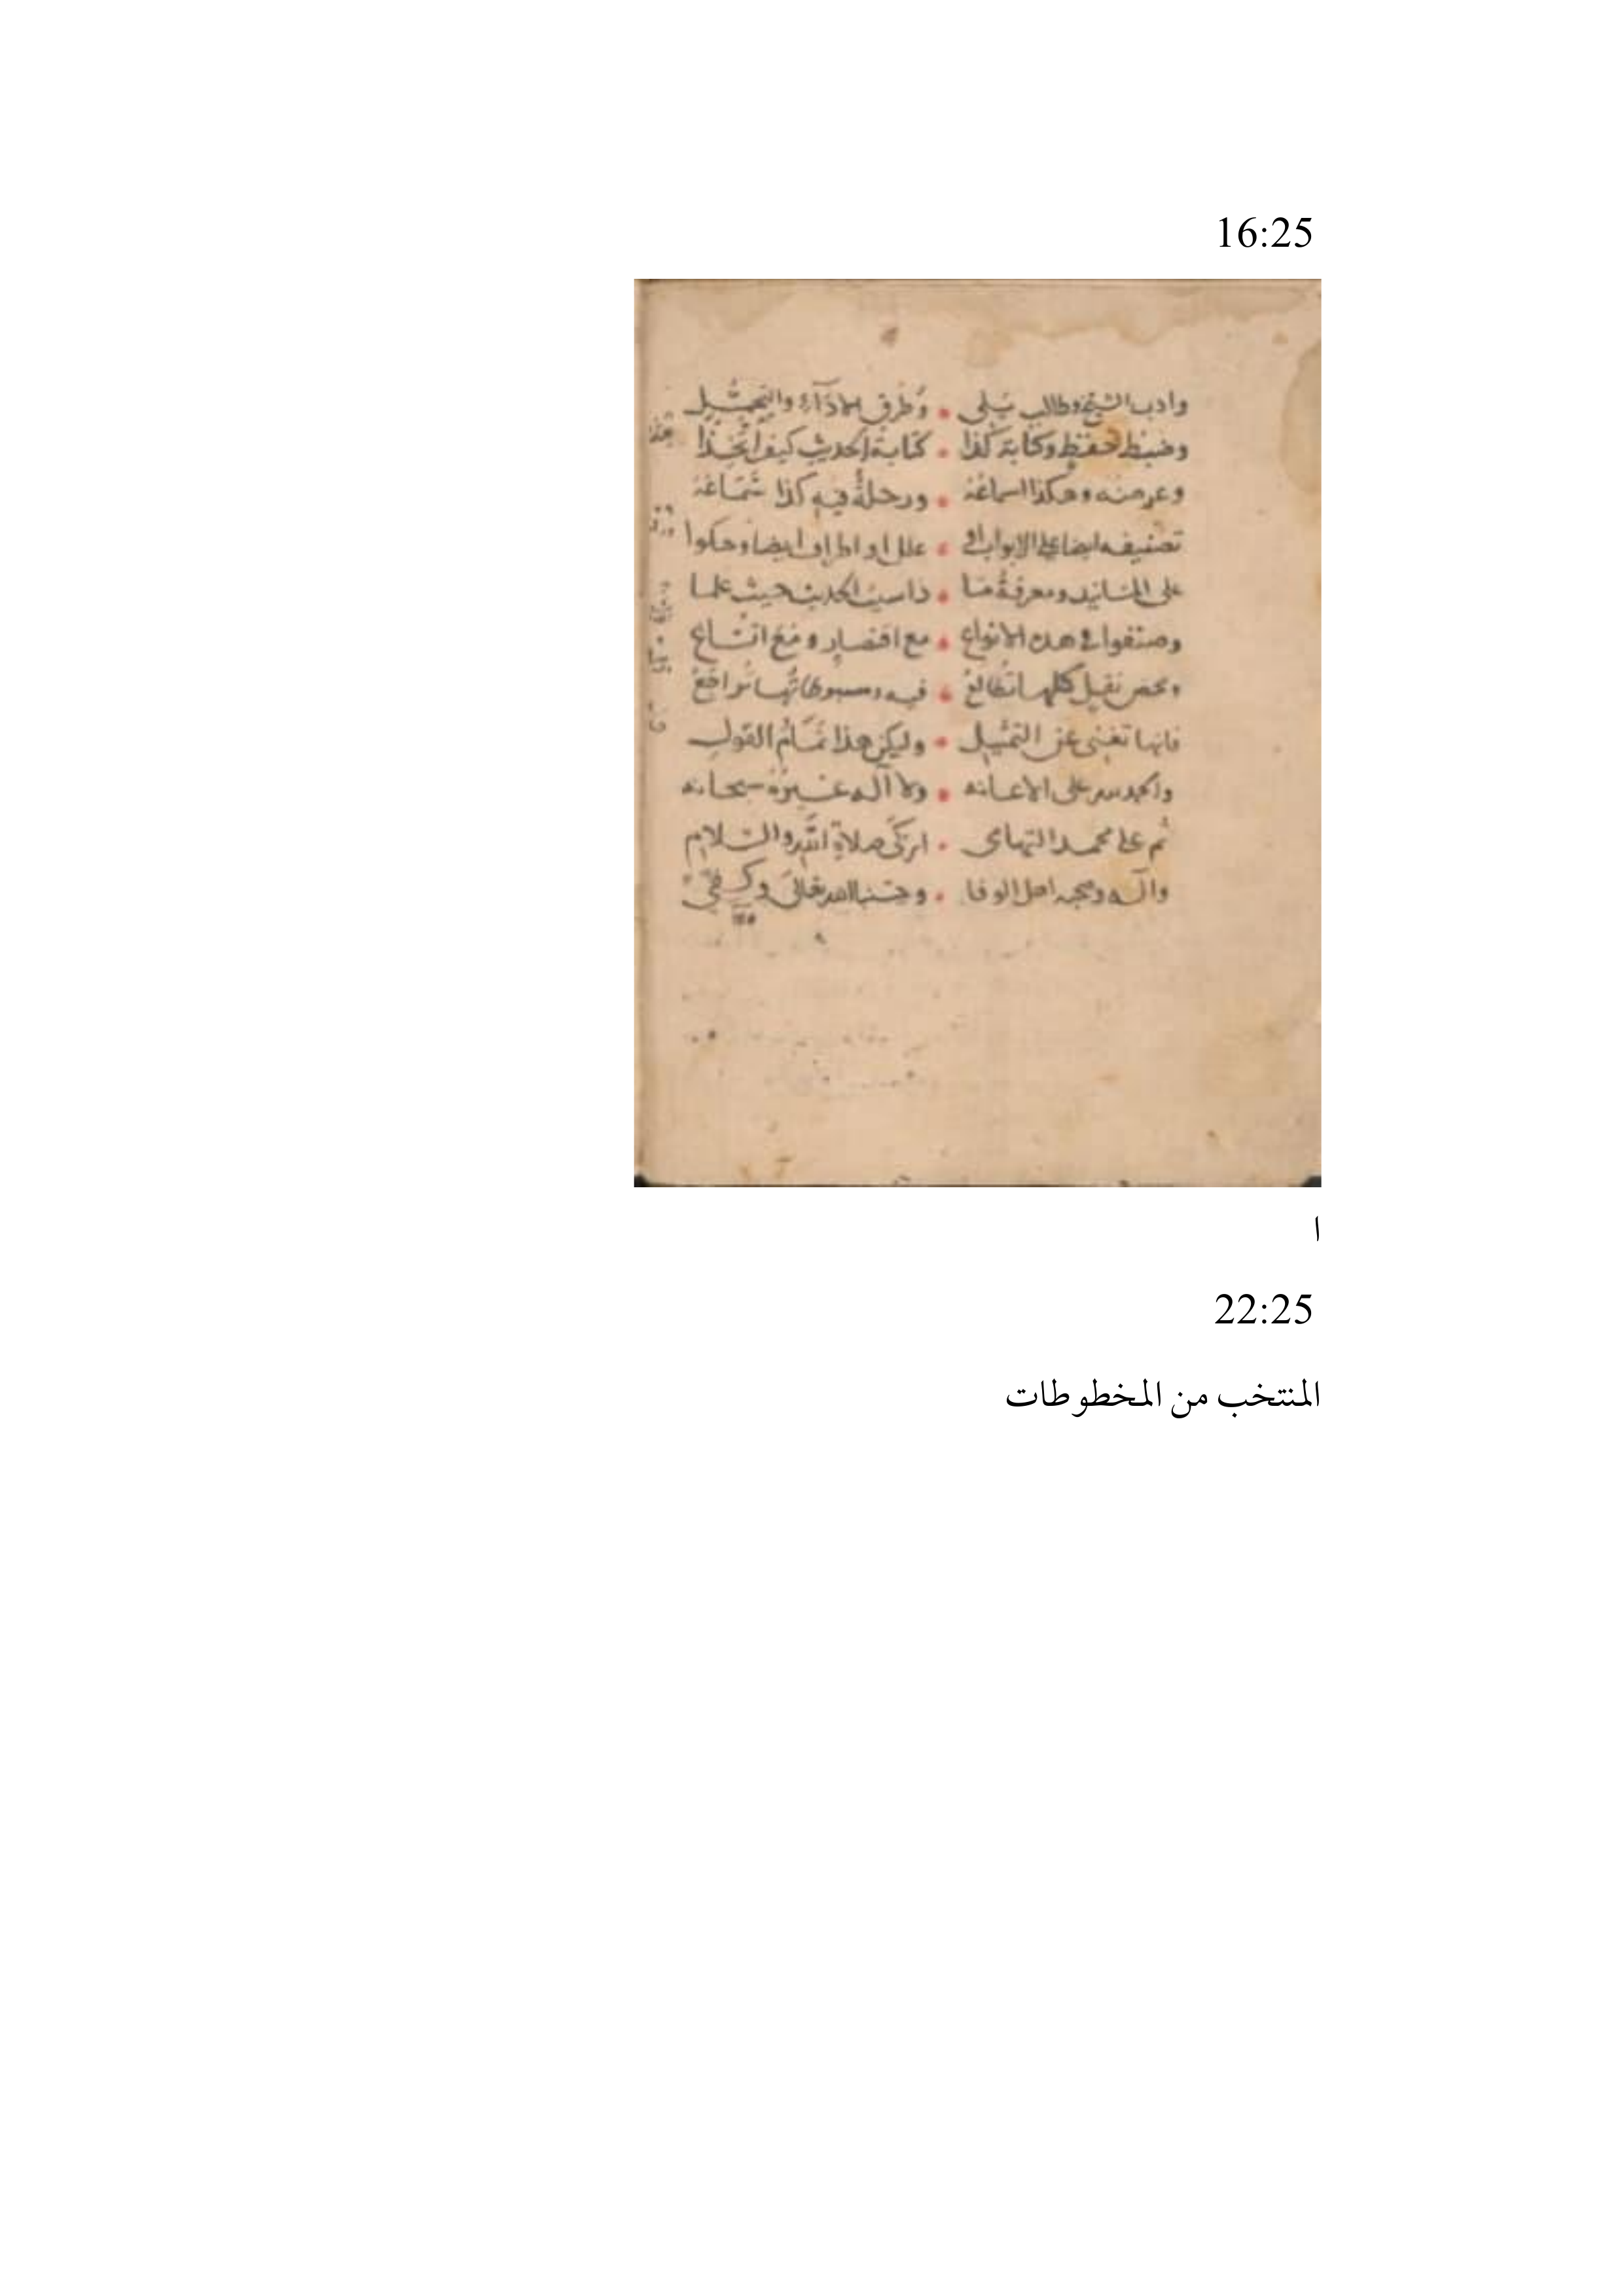 16:25
وادب الشيخ وطالب يلى • وطرق الادآء والتحمّل
وضبط حفظ وكتابة كذا • كتابة الحديث كيف اتخذا
وعرضه وهكذا اسماعه • ورحلةٌ فيه كذا سماعه
تصنيفه ايضا على الابواب او • علل او اطراف ايضا وحكوا
على المسانيد ومعرفةُ ما • ذا سبب الحديث حيث علما
وصنفوا في هذه الانواع • مع اقتصار ومع اتساع
ومحض نقل كلها تطالع • فيه ومبسوطاتُها تراجع
فانها تغنى عن التمثيل • وليكن هذا تمام القول
والحمد لله على الاعانه • ولا اله غيره سبحانه
ثم على محمد التهامى • ازكى صلاة الله والسلام
وآله وصحبه اهل الوفا • وحسبنا الله تعالى وكفى
ا
22:25
المنتخب من المخطوطات